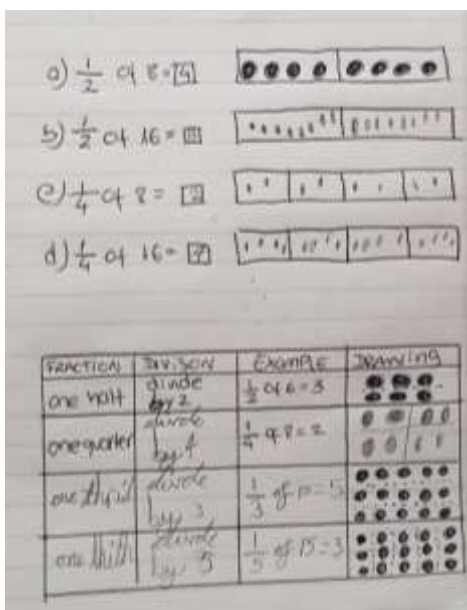 a) 1/2 of 8 = 4
b) 1/2 of 16 =
c) 1/4 of 8 = 2
d) 1/4 of 16 =
FRACTION DIVISON EXAMPLE DRAWING
one half divide by 2 1/2 of 6 = 3
one quarter divide by 4 1/4 of 8 = 2
one third divide by 3 1/3 of 15 = 5
one fifth divide by 5 1/5 of 15 = 3